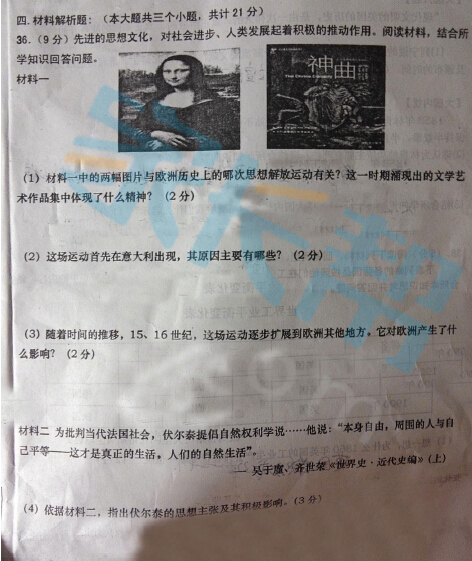 四. 材料解析题：（本大题共三个小题，共计21分）
36.（9分）先进的思想文化，对社会进步、人类发展起着积极的推动作用。阅读材料，结合所
学知识回答问题。
材料一
神曲
（1）材料一中的两幅图片与欧洲历史上的哪次思想解放运动有关？这一时期涌现出的文学艺
术作品集中体现了什么精神？（2分）
（2）这场运动首先在意大利出现，其原因主要有哪些？（2分）
（3）随着时间的推移，15、16世纪，这场运动逐步扩展到欧洲其他地方。它对欧洲产生了什
么影响？（2分）
材料二 为批判当代法国社会，伏尔泰提倡自然权利学说……他说：“本身自由，周围的人与自
己平等——这才是真正的生活。人们的自然生活”。
——吴于廑、齐世荣《世界史·近代史编》（上）
（4）依据材料二，指出伏尔泰的思想主张及其积极影响。（3分）